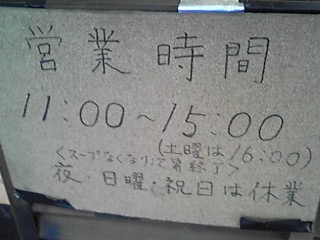 営業時間
11:00～15:00
(土曜は16:00)
<スープなくなり次第終了>
夜・日曜・祝日は休業